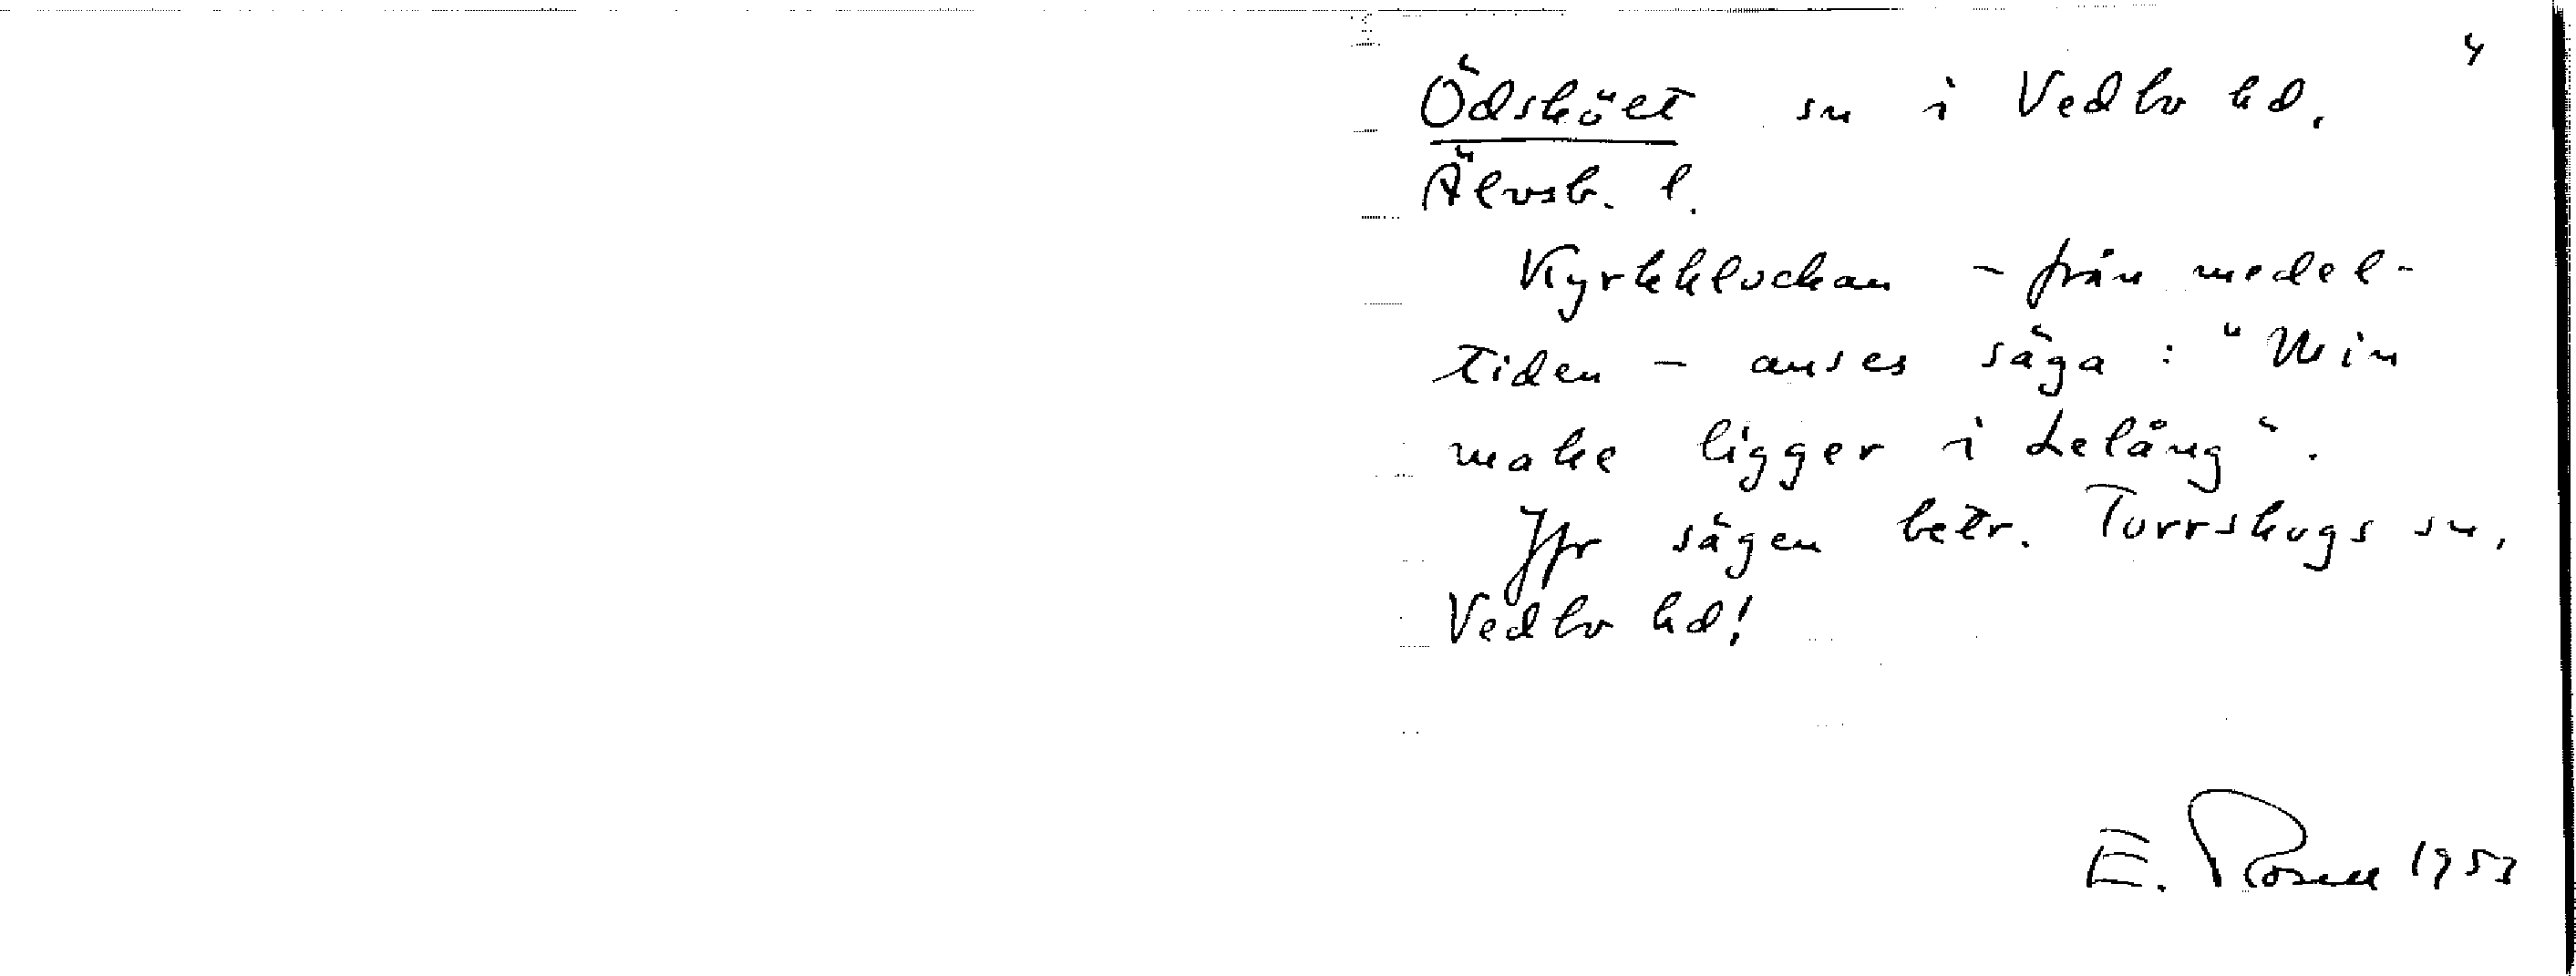 4
Ödskölt sn i Vedbo hd,
Älvsb. l.
Kyrkklockan - från medel-
tiden - anses säga: "Min
make ligger i Lelång".
Jfr sägen betr. Torrskogs sn,
Vedbo hd!
E. Rosell 1953